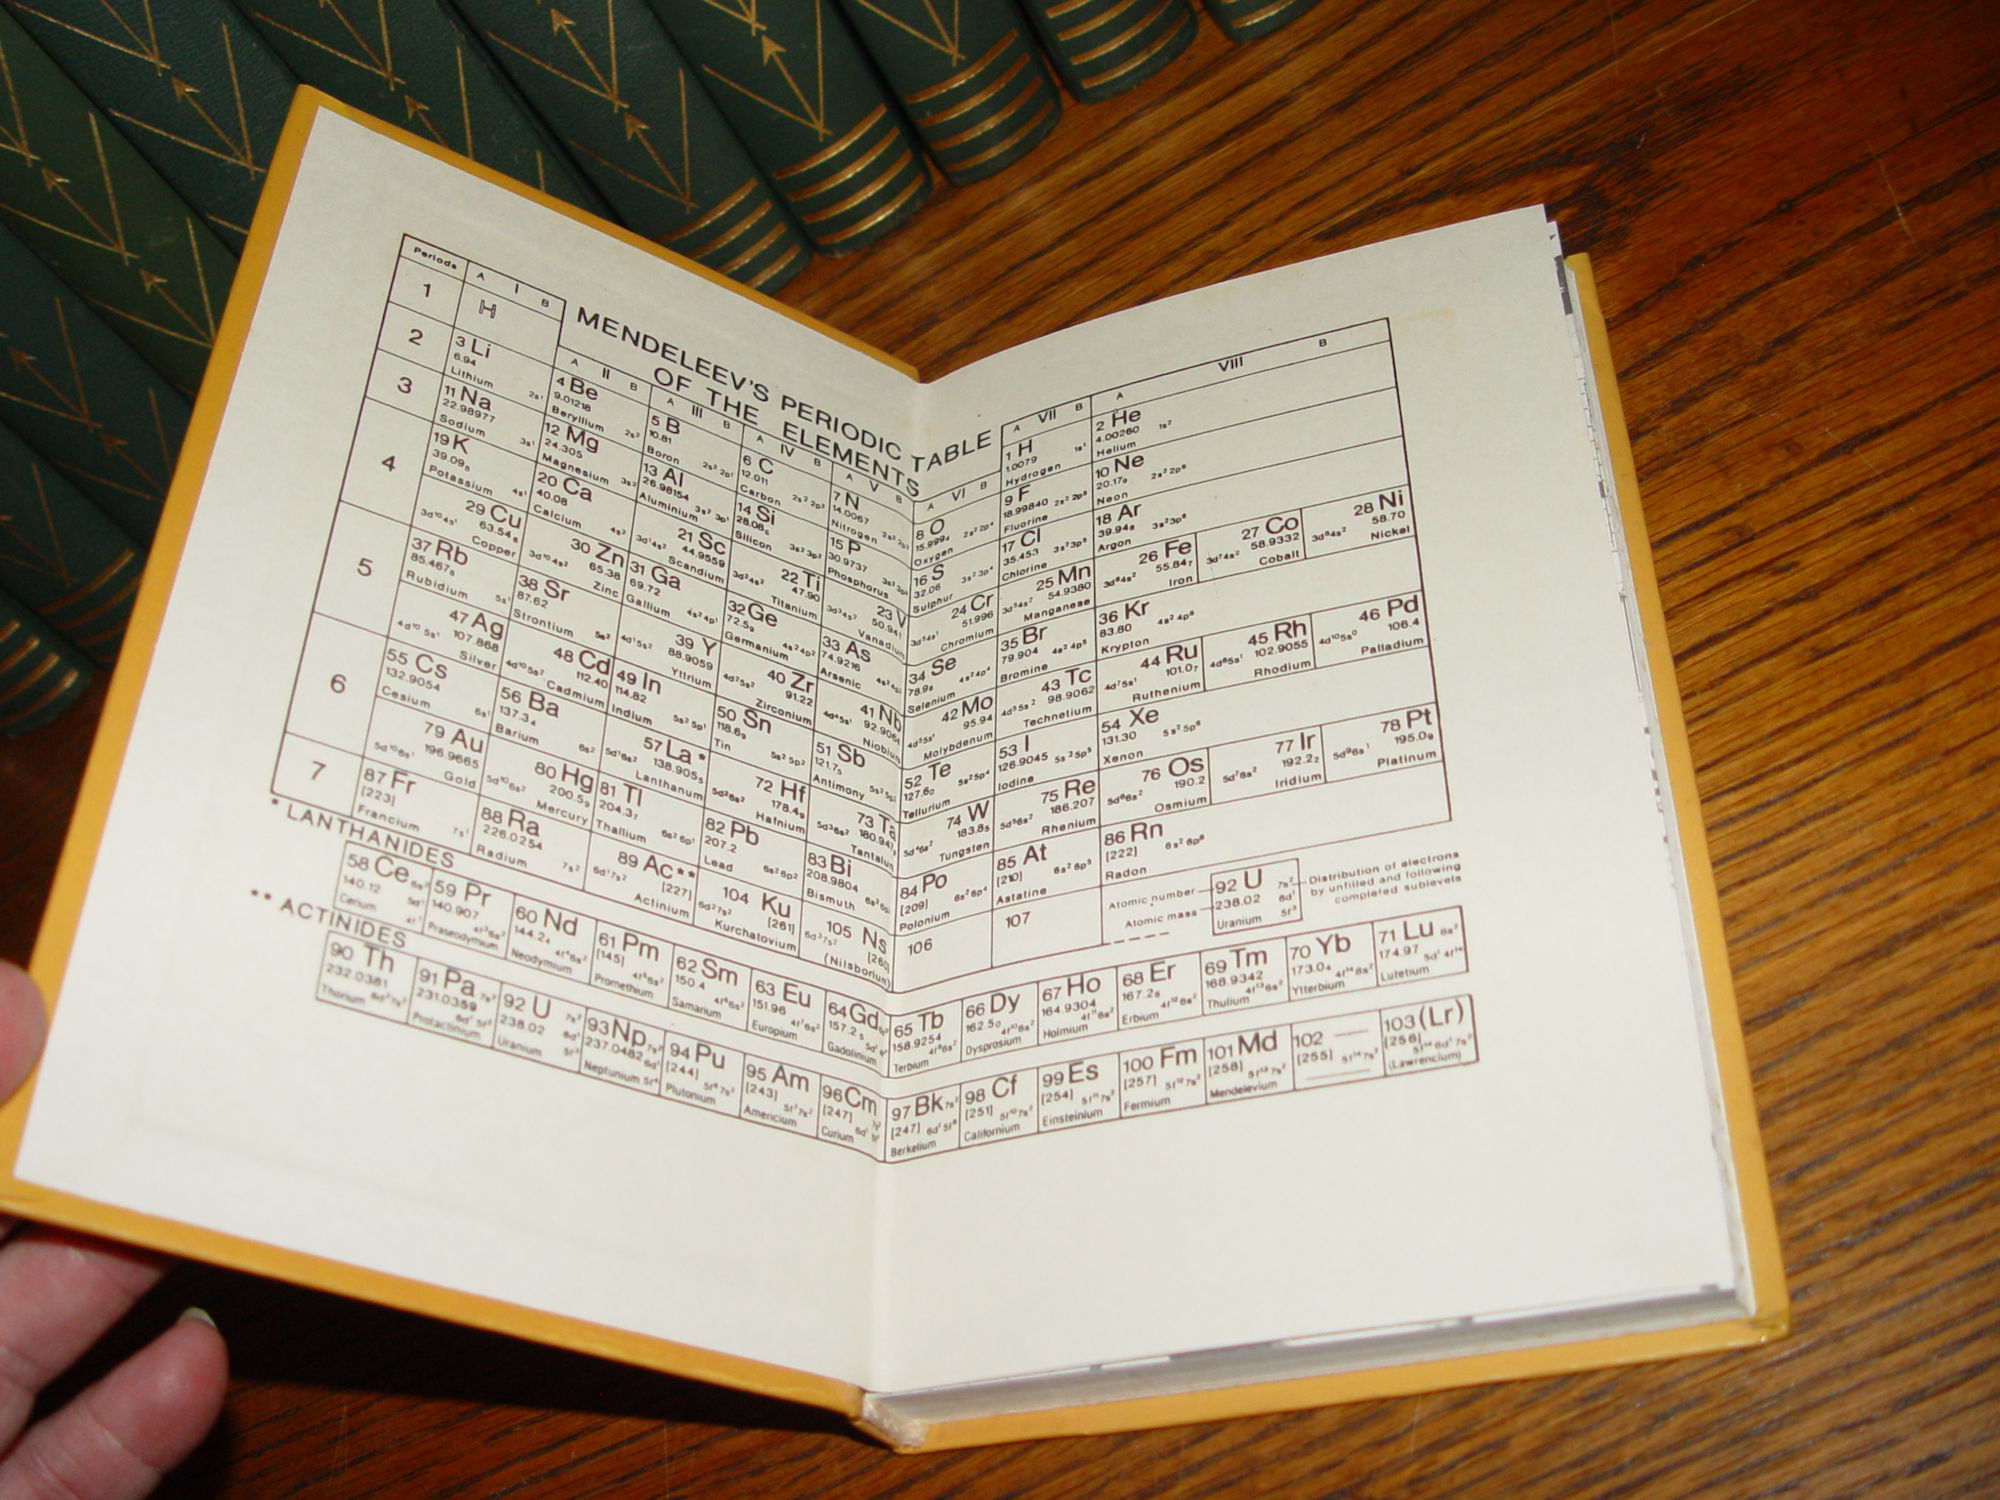 MENDELEEV'S PERIODIC TABLE
OF THE ELEMENTS
Periods A I B
A II B A III B A IV B A V B A VI B A VII B A VIII B
1 H
1 H 1.0079 Hydrogen 1s¹
2 He 4.00260 Helium 1s²
2
3 Li 6.94 Lithium 2s¹
4 Be 9.01218 Beryllium 2s²
5 B 10.81 Boron 2s² 2p¹
6 C 12.011 Carbon 2s² 2p²
7 N 14.0067 Nitrogen 2s² 2p³
8 O 15.9994 Oxygen 2s² 2p⁴
9 F 18.99840 Fluorine 2s² 2p⁵
10 Ne 20.179 Neon 2s² 2p⁶
3
11 Na 22.98977 Sodium 3s¹
12 Mg 24.305 Magnesium 3s²
13 Al 26.98154 Aluminium 3s² 3p¹
14 Si 28.086 Silicon 3s² 3p²
15 P 30.9737 Phosphorus 3s² 3p³
16 S 32.06 Sulphur 3s² 3p⁴
17 Cl 35.453 Chlorine 3s² 3p⁵
18 Ar 39.948 Argon 3s² 3p⁶
4
19 K 39.098 Potassium 4s¹
20 Ca 40.08 Calcium 4s²
21 Sc 44.9559 Scandium 3d¹4s²
22 Ti 47.90 Titanium 3d²4s²
23 V 50.941 Vanadium 3d³4s²
24 Cr 51.996 Chromium 3d⁵4s¹
25 Mn 54.9380 Manganese 3d⁵4s²
26 Fe 55.847 Iron 3d⁶4s²
27 Co 58.9332 Cobalt 3d⁷4s²
28 Ni 58.70 Nickel 3d⁸4s²
29 Cu 63.546 Copper 3d¹⁰4s¹
30 Zn 65.38 Zinc 3d¹⁰4s²
31 Ga 69.72 Gallium 4s² 4p¹
32 Ge 72.59 Germanium 4s² 4p²
33 As 74.9216 Arsenic 4s² 4p³
34 Se 78.96 Selenium 4s² 4p⁴
35 Br 79.904 Bromine 4s² 4p⁵
36 Kr 83.80 Krypton 4s² 4p⁶
5
37 Rb 85.4678 Rubidium 5s¹
38 Sr 87.62 Strontium 5s²
39 Y 88.9059 Yttrium 4d¹5s²
40 Zr 91.22 Zirconium 4d²5s²
41 Nb 92.9064 Niobium 4d⁴5s¹
42 Mo 95.94 Molybdenum 4d⁵5s¹
43 Tc 98.9062 Technetium 4d⁵5s²
44 Ru 101.07 Ruthenium 4d⁷5s¹
45 Rh 102.9055 Rhodium 4d⁸5s¹
46 Pd 106.4 Palladium 4d¹⁰5s⁰
47 Ag 107.868 Silver 4d¹⁰5s¹
48 Cd 112.40 Cadmium 4d¹⁰5s²
49 In 114.82 Indium 5s² 5p¹
50 Sn 118.69 Tin 5s² 5p²
51 Sb 121.75 Antimony 5s² 5p³
52 Te 127.60 Tellurium 5s² 5p⁴
53 I 126.9045 Iodine 5s² 5p⁵
54 Xe 131.30 Xenon 5s² 5p⁶
6
55 Cs 132.9054 Cesium 6s¹
56 Ba 137.34 Barium 6s²
57 La* 138.9055 Lanthanum 5d¹6s²
72 Hf 178.49 Hafnium 5d²6s²
73 Ta 180.947 Tantalum 5d³6s²
74 W 183.85 Tungsten 5d⁴6s²
75 Re 186.207 Rhenium 5d⁵6s²
76 Os 190.2 Osmium 5d⁶6s²
77 Ir 192.22 Iridium 5d⁷6s²
78 Pt 195.09 Platinum 5d⁹6s¹
79 Au 196.9665 Gold 5d¹⁰6s¹
80 Hg 200.59 Mercury 5d¹⁰6s²
81 Tl 204.37 Thallium 6s² 6p¹
82 Pb 207.2 Lead 6s² 6p²
83 Bi 208.9804 Bismuth 6s² 6p³
84 Po [209] Polonium 6s² 6p⁴
85 At [210] Astatine 6s² 6p⁵
86 Rn [222] Radon 6s² 6p⁶
7
87 Fr [223] Francium 7s¹
88 Ra 226.0254 Radium 7s²
89 Ac** [227] Actinium 6d¹7s²
104 Ku [261] Kurchatovium 6d²7s²
105 Ns [260] (Nilsborium) 6d³7s²
106
107
Atomic number 92 U 7s² Distribution of electrons
Atomic mass 238.02 6d¹ by unfilled and following
Uranium 5f³ completed sublevels
* LANTHANIDES
58 Ce 140.12 Cerium 6s² 5d¹ 4f¹
59 Pr 140.907 Praseodymium 4f³6s²
60 Nd 144.24 Neodymium 4f⁴6s²
61 Pm [145] Promethium 4f⁵6s²
62 Sm 150.4 Samarium 4f⁶6s²
63 Eu 151.96 Europium 4f⁷6s²
64 Gd 157.25 Gadolinium 6s² 5d¹ 4f⁷
65 Tb 158.9254 Terbium 4f⁹6s²
66 Dy 162.50 Dysprosium 4f¹⁰6s²
67 Ho 164.9304 Holmium 4f¹¹6s²
68 Er 167.26 Erbium 4f¹²6s²
69 Tm 168.9342 Thulium 4f¹³6s²
70 Yb 173.04 Ytterbium 4f¹⁴6s²
71 Lu 174.97 Lutetium 6s² 5d¹ 4f¹⁴
** ACTINIDES
90 Th 232.0381 Thorium 6d²7s²
91 Pa 231.0359 Protactinium 7s² 6d¹ 5f²
92 U 238.02 Uranium 7s² 6d¹ 5f³
93 Np 237.0482 Neptunium 7s² 6d¹ 5f⁴
94 Pu [244] Plutonium 5f⁶7s²
95 Am [243] Americium 5f⁷7s²
96 Cm [247] Curium 7s² 6d¹ 5f⁷
97 Bk [247] Berkelium 7s² 6d¹ 5f⁸
98 Cf [251] Californium 5f¹⁰7s²
99 Es [254] Einsteinium 5f¹¹7s²
100 Fm [257] Fermium 5f¹²7s²
101 Md [258] Mendelevium 5f¹³7s²
102 [255] 5f¹⁴7s²
103 (Lr) [256] (Lawrencium) 5f¹⁴ 6d¹ 7s²